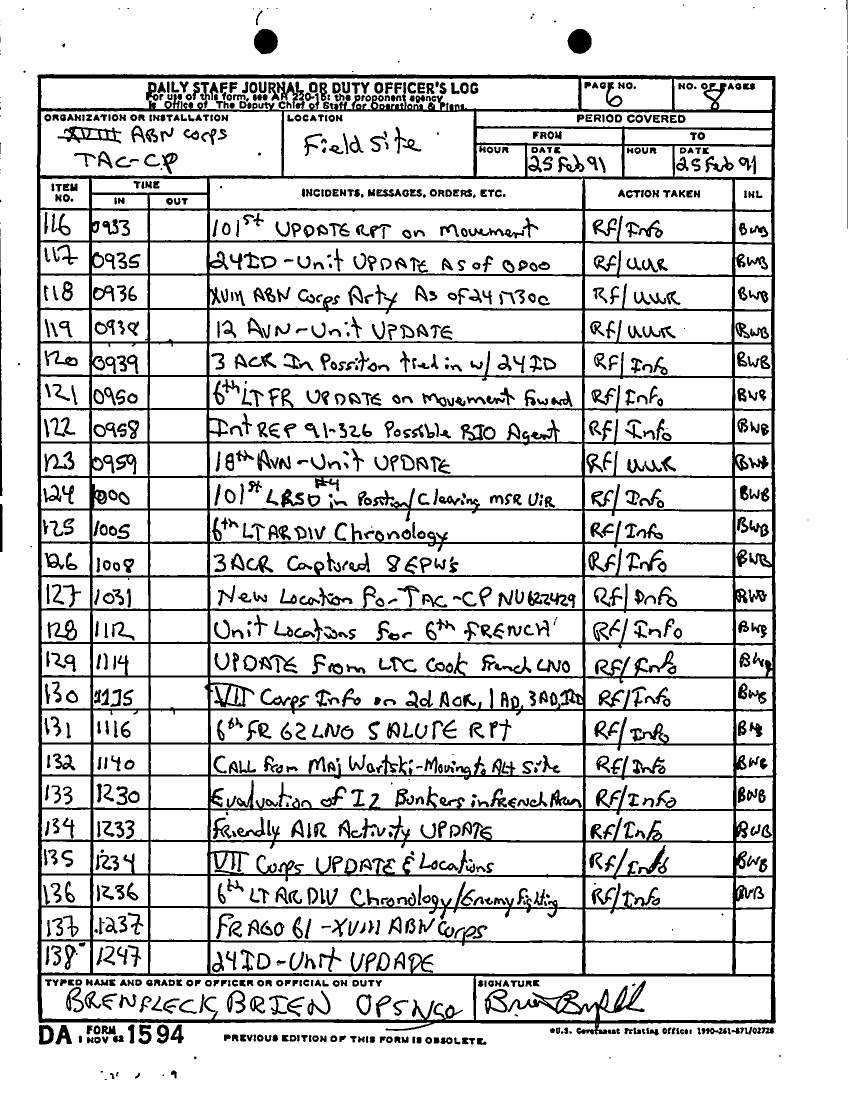 DAILY STAFF JOURNAL OR DUTY OFFICER'S LOG
For use of this form, see AR 220-15; the proponent agency
is Office of The Deputy Chief of Staff for Operations & Plans.
PAGE NO. 6
NO. OF PAGES 8
ORGANIZATION OR INSTALLATION
XVIII ABN Corps
TAC-CP
LOCATION
Field Site
PERIOD COVERED
FROM TO
HOUR DATE HOUR DATE
25 Feb 91 25 Feb 91
ITEM NO. TIME IN OUT INCIDENTS, MESSAGES, ORDERS, ETC. ACTION TAKEN INL
116 0933 101st UPDATE RPT on Movement Rf/Info BWB
117 0935 24ID-Unit UPDATE As of 0800 Rf/UUR BWB
118 0936 XVIII ABN Corps Arty As of 241730C Rf/UUR BWB
119 0938 12 AVN-Unit UPDATE Rf/UUR BWB
120 0939 3 ACR In Possiton tied in w/ 24ID Rf/Info BWB
121 0950 6th LT FR UPDATE on Movement Foward Rf/Info BWB
122 0958 Int REP 91-326 Possible BIO Agent Rf/Info BWB
123 0959 18th AVN-Unit UPDATE Rf/UUR BWB
124 1000 101st LRSD #4 in Position/Clearing MSR VIR Rf/Info BWB
125 1005 6th LT AR DIV Chronology Rf/Info BWB
126 1008 3ACR Captured 8 EPW's Rf/Info BWB
127 1031 New Location For TAC-CP NU622429 Rf/Info BWB
128 1112 Unit Locations for 6th FRENCH Rf/Info BWB
129 1114 UPDATE From LTC Cook French LNO Rf/Info BWB
130 1115 VII Corps Info on 2d ACR, 1 AD, 3AD, 1ID Rf/Info BWB
131 1116 6th FR 62 LNO SALUTE RPT Rf/Info BWB
132 1140 CALL from Maj Wartski-Moving to Alt Site Rf/Info BWB
133 1230 Evaluation of IZ Bunkers in French Area Rf/Info BWB
134 1233 Friendly AIR Activity UPDATE Rf/Info BWB
135 1234 VII Corps UPDATE & Locations Rf/Info BWB
136 1236 6th LT AR DIV Chronology/Enemy Fighting Rf/Info BWB
137 1237 FRAGO 61 -XVIII ABN Corps
138 1247 24ID-Unit UPDATE
TYPED NAME AND GRADE OF OFFICER OR OFFICIAL ON DUTY
BRENFLECK, BRIEN OPSNCO
SIGNATURE
DA FORM 1 NOV 62 1594
PREVIOUS EDITION OF THIS FORM IS OBSOLETE.
*U.S. Government Printing Office: 1990-261-871/02728